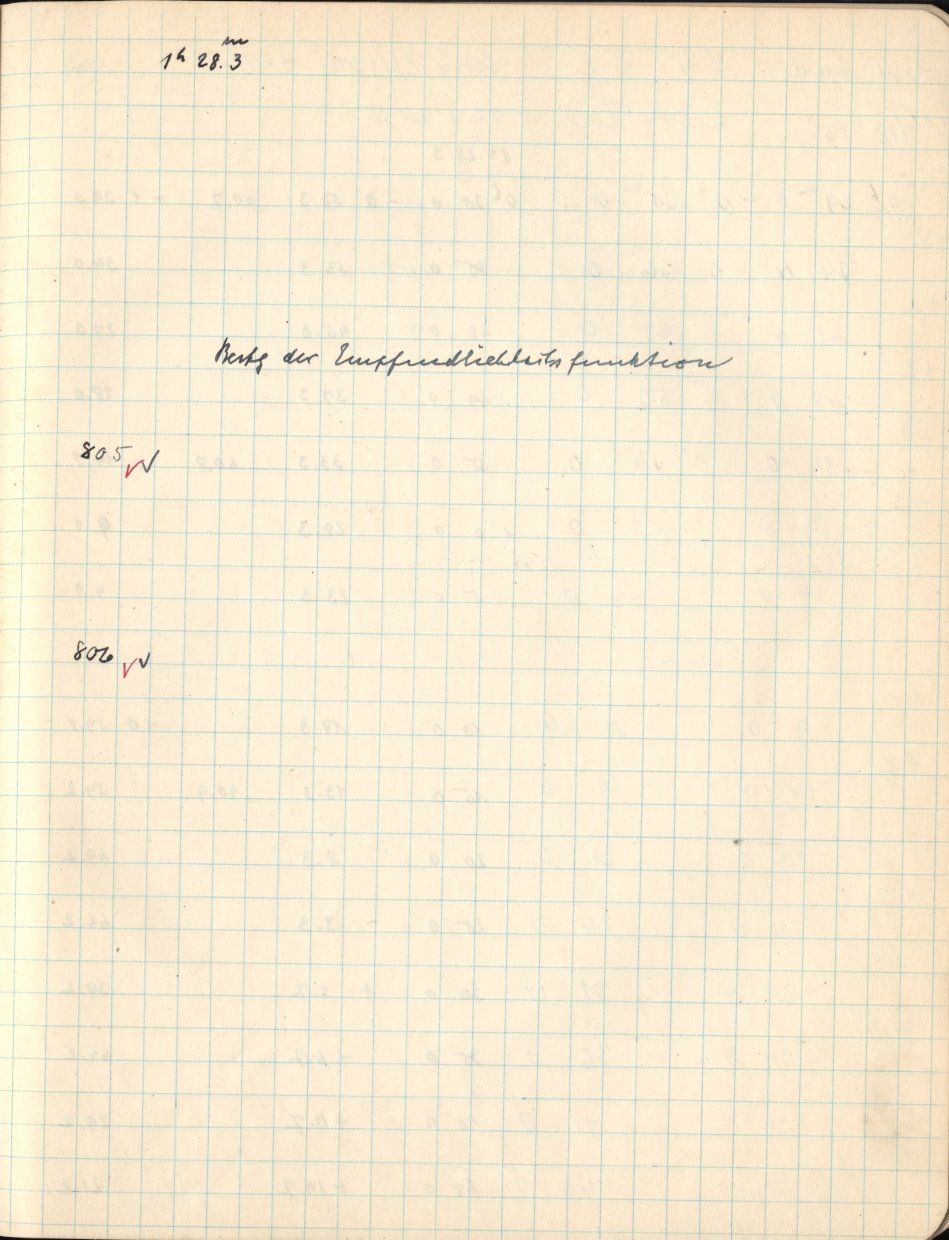 1h 28.3m
Bestg der Empfindlichkeitsfunktion
805 √√
806 √√